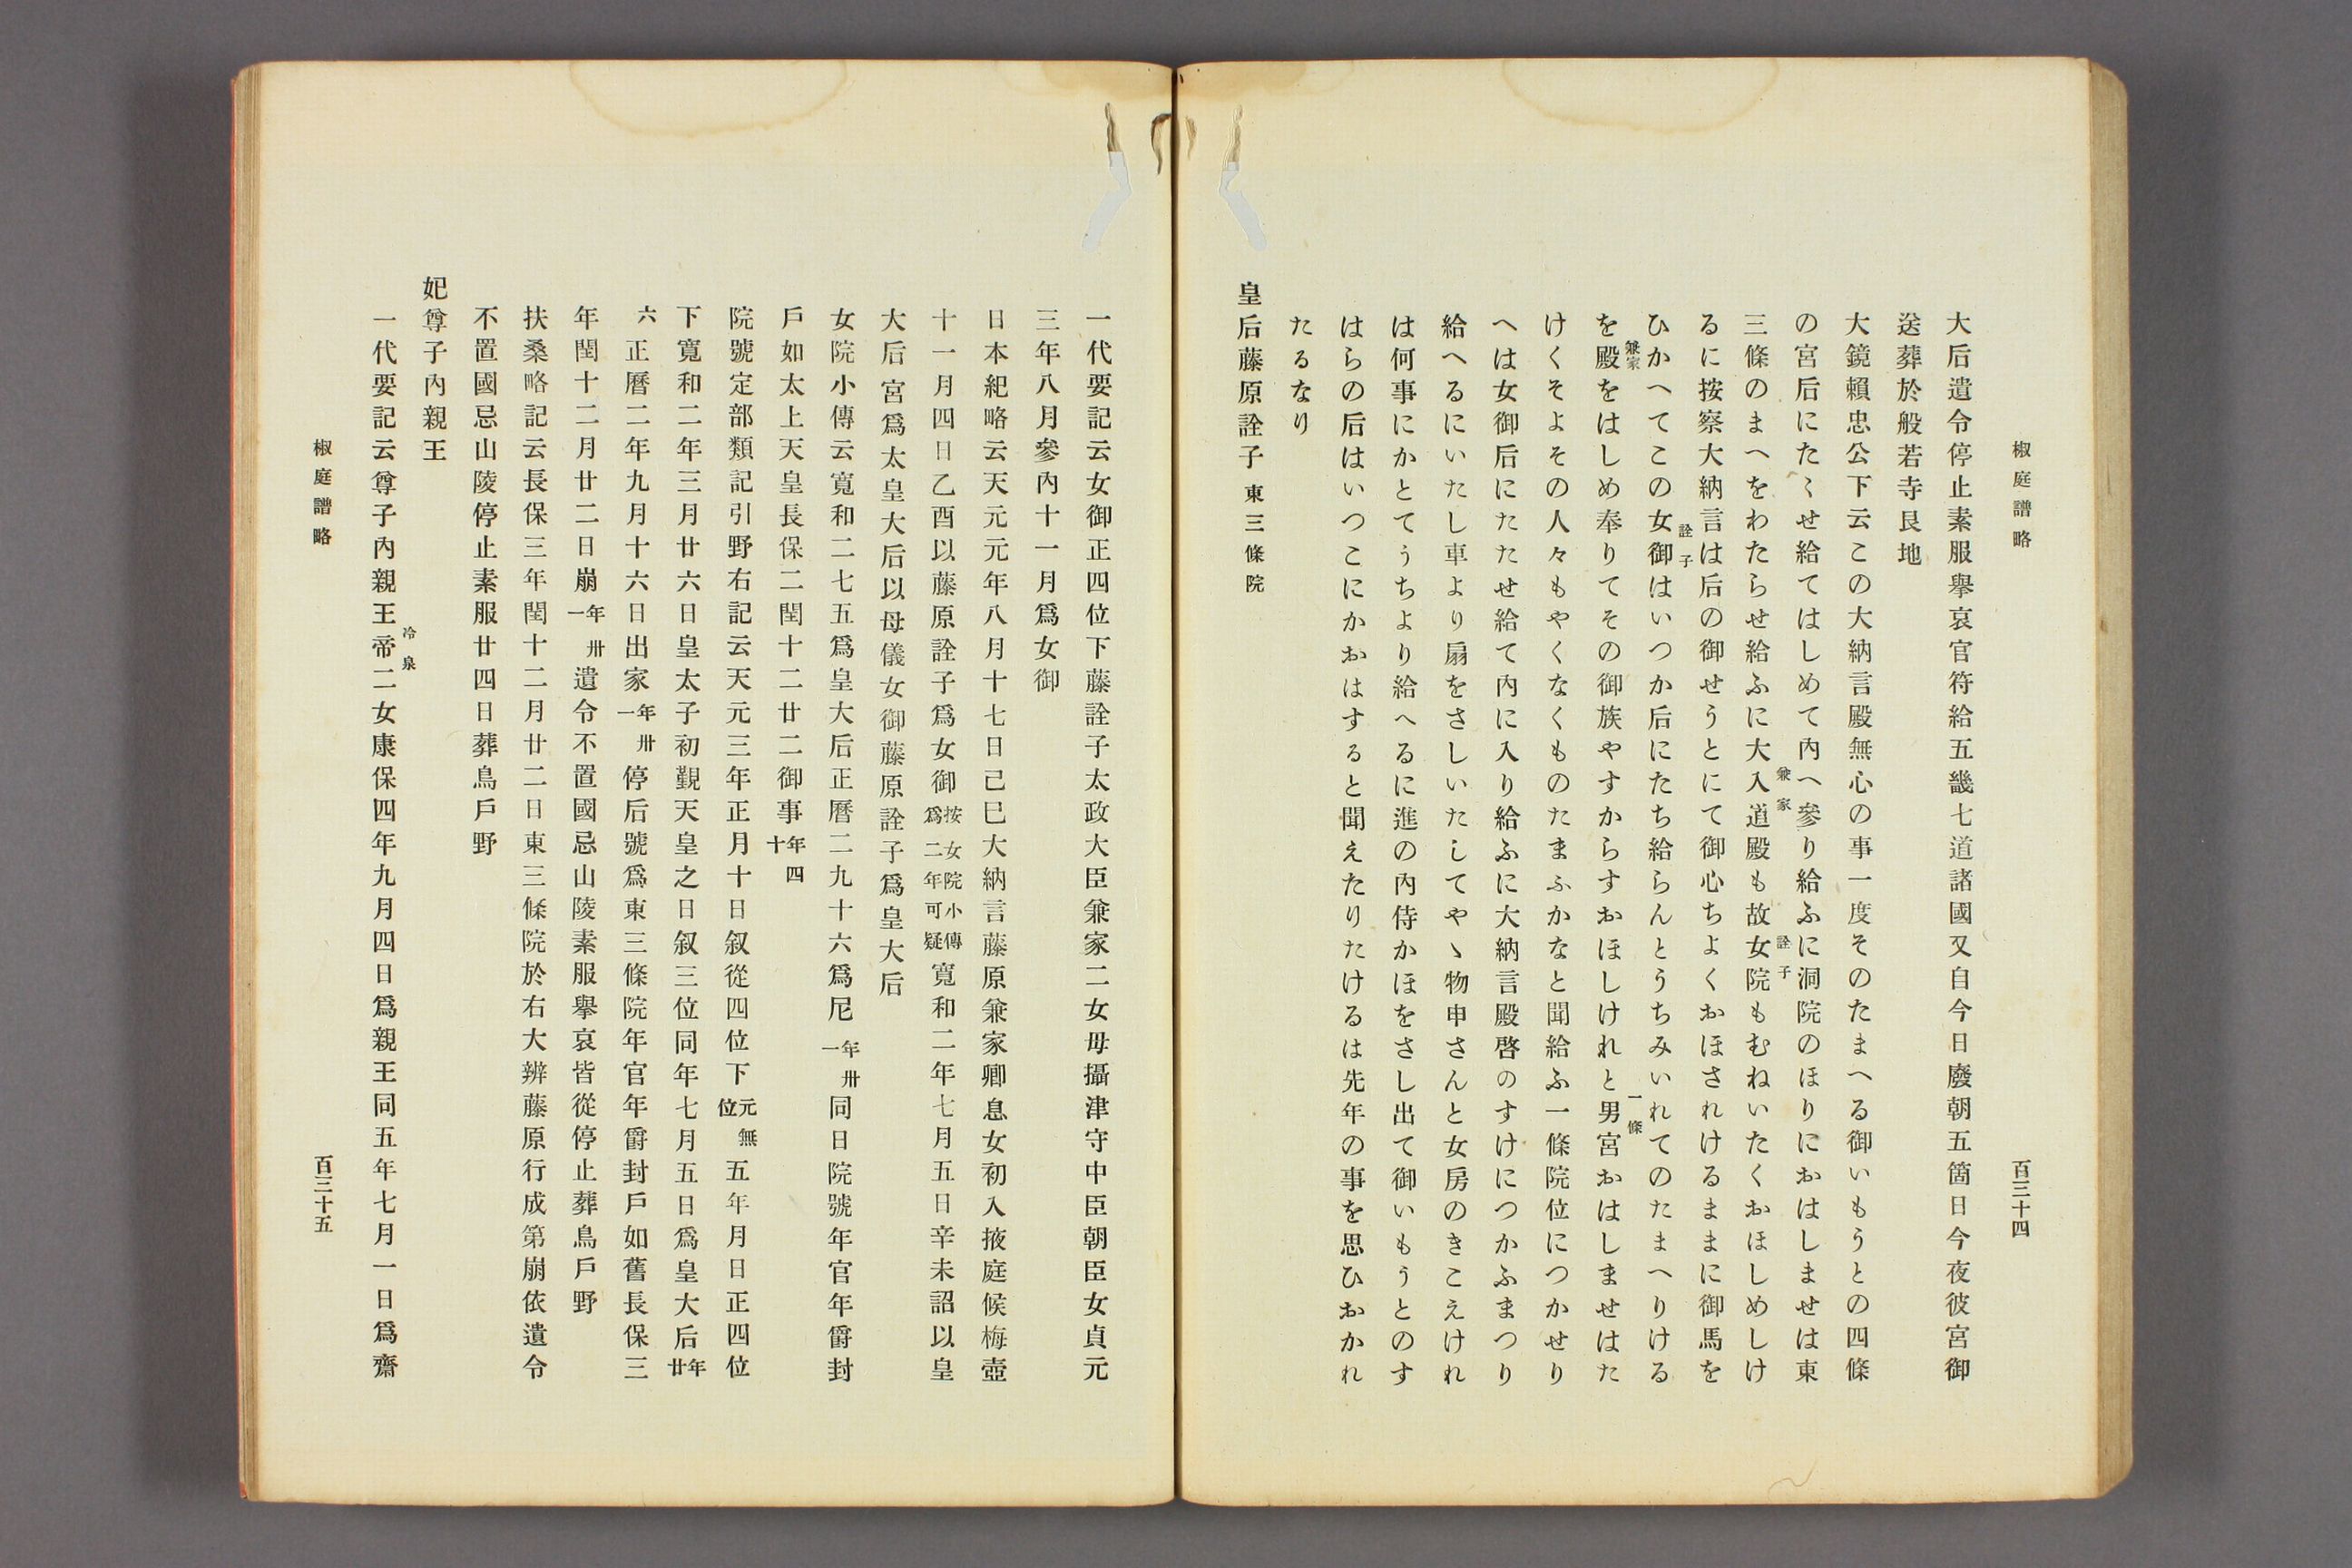 椒庭譜略
百三十四
大后遺令停止素服擧哀官符給五畿七道諸國又自今日廢朝五箇日今夜彼宮御
送葬於般若寺艮地
大鏡賴忠公下云この大納言殿無心の事一度そのたまへる御いもうとの四條
の宮后にたゝせ給てはしめて內へ參り給ふに洞院のほりにおはしませは東
三條のまへをわたらせ給ふに大入道殿兼家も故女院詮子もむねいたくおほしめしけ
るに按察大納言は后の御せうとにて御心ちよくおほされけるままに御馬を
ひかへてこの女御詮子はいつか后にたち給らんとうちみいれてのたまへりける
を殿兼家をはしめ奉りてその御族やすからすおほしけれと男宮一條おはしませはた
けくそよその人々もやくなくものたまふかなと聞給ふ一條院位につかせり
へは女御后にたたせ給て內に入り給ふに大納言殿啓のすけにつかふまつり
給へるにいたし車より扇をさしいたしてやゝ物申さんと女房のきこえけれ
は何事にかとてうちより給へるに進の內侍かほをさし出て御いもうとのす
はらの后はいつこにかおはすると聞えたりたけるは先年の事を思ひおかれ
たるなり
皇后藤原詮子 東三條院
一代要記云女御正四位下藤詮子太政大臣兼家二女母攝津守中臣朝臣女貞元
三年八月參內十一月爲女御
日本紀略云天元元年八月十七日己巳大納言藤原兼家卿息女初入掖庭候梅壺
十一月四日乙酉以藤原詮子爲女御按女院小傳爲二年可疑寬和二年七月五日辛未詔以皇
大后宮爲太皇大后以母儀女御藤原詮子爲皇大后
女院小傳云寬和二七五爲皇大后正曆二九十六爲尼年卅一同日院號年官年爵封
戶如太上天皇長保二閏十二廿二御事年四十
院號定部類記引野右記云天元三年正月十日叙從四位下元無位五年月日正四位
下寬和二年三月廿六日皇太子初覲天皇之日叙三位同年七月五日爲皇大后年廿
六正曆二年九月十六日出家年卅一停后號爲東三條院年官年爵封戶如舊長保三
年閏十二月廿二日崩年卅一遺令不置國忌山陵素服擧哀皆從停止葬鳥戶野
扶桑略記云長保三年閏十二月廿二日東三條院於右大辨藤原行成第崩依遺令
不置國忌山陵停止素服廿四日葬鳥戶野
妃尊子內親王
一代要記云尊子內親王冷泉帝二女康保四年九月四日爲親王同五年七月一日爲齋
椒庭譜略
百三十五